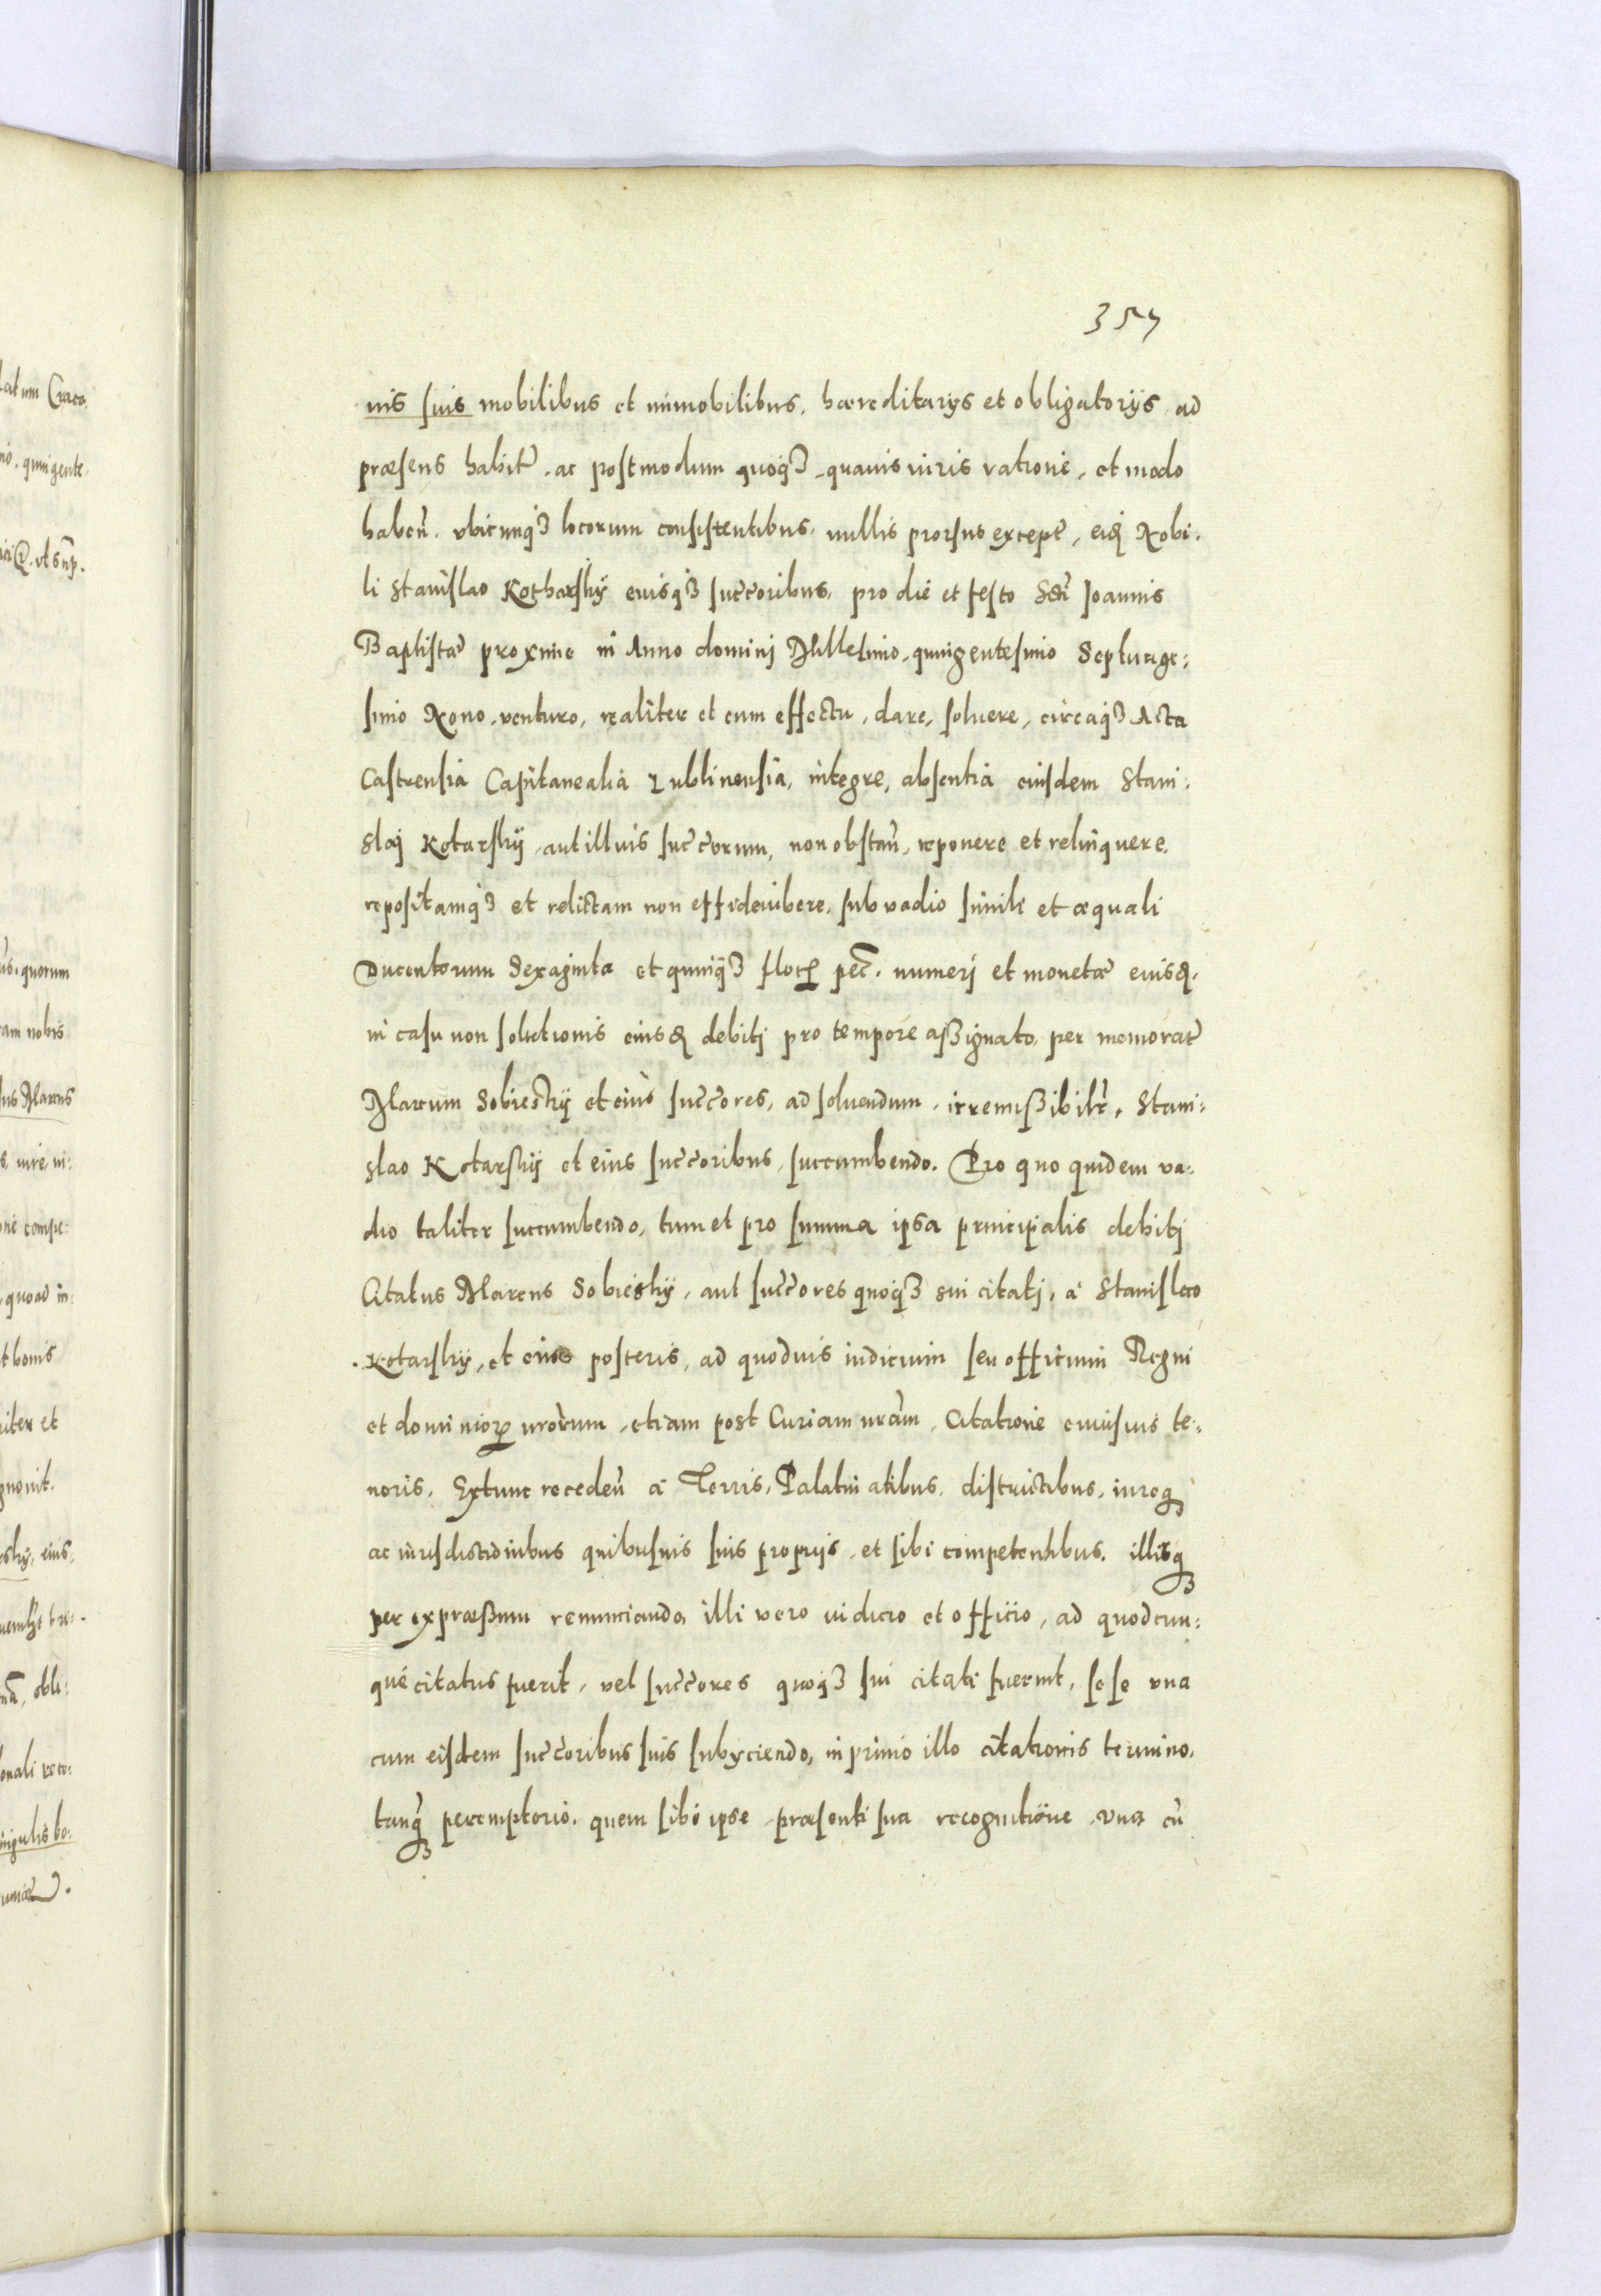 357
nis suis mobilibus et immobilibus, haereditarys et obligatorÿs ad
praesens habit̃. ac postmodum quoqꝫ quauis iuris ratione, et modo
habeñ. vbicunqꝫ locorum consistentibus, nullis prorsus except̃, eiꝗ Nobi-
li Stanislao Kotharskÿ eiusqꝫ succ̃oribus, pro die et festo Scti Joannis
Baptistae proxime in Anno dominj Millesimo quingentesimo Septuage:
simo Nono venturo, realiter et cum effectu, dare, soluere, circaqꝫ Acta
Castrensia Capitanealia Lublinensia, integre, absentia eiusdem Stani-
slaj Kotarskÿ aut illius succ̃orum, non obstañ, reponere et relinquere.
repositamqꝫ et relictam non effideiubere, sub vadio simili et aequali
Ducentorum Sexaginta et quinqꝫ floꝝ pec̃. numerj et monetae eiusꝗ.
in casu non solutionis eiusꝗ debitj pro tempore assignato, per memorat̃
Marcum Sobieskÿ et eius succ̃ores, ad soluendum, irremissibilr̃, Stani:
slao Kotarskÿ et eius succ̃oribus, succumbendo. Pro quo quidem va-
dio taliter succumbendo, tum et pro summa ipsa principalis debitj
Citatus Marcus Sobieskÿ, aut succ̃ores quoqꝫ sui citatj, a Stanislao
Kotarskÿ, et eius posteris, ad quoduis iudicium seu officium Regni
et dominioꝝ nrõrum, etiam post Curiam nrãm, Citatione cuiusuis te-
noris. Extunc recedeñ a Terris, Palatinatibus, districtibus, iureqꝫ
ac iurisdictionibus quibusuis suis proprÿs, et sibi competentibus, illisqꝫ
per expraessum renunciando, illi vero iudicio et officio, ad quodcun:
que citatus fuerit, vel succ̃ores quoqꝫ sui citati fuerint, se se vna
cum eisdem succ̃oribus suis subyciendo, in primo illo citationis termino,
tanqꝫ peremptorio, quem sibi ipse praesenti sua recognitione, vna cũ